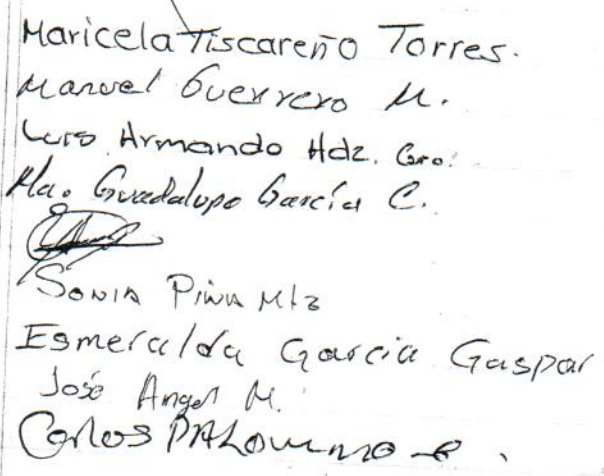 Maricela Tiscareño Torres.
Manuel Guerrero M.
Luis Armando Hdz. Gro.
Ma. Guadalupe García C.
Sonia Piña Mtz
Esmeralda García Gaspar
José Angel M.
Carlos PALOMINO